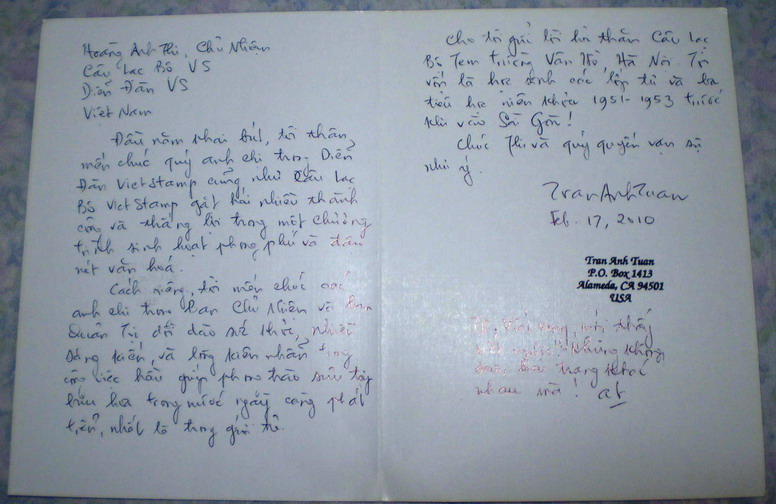 Hoàng Anh Thi, Chủ Nhiệm
Câu Lạc Bộ VS
Diễn Đàn VS
Việt Nam
Đầu năm khai bút, tôi thân
mến chúc quý anh chị trong Diễn
Đàn VietStamp cũng như Câu Lạc
Bộ VietStamp gặt hái nhiều thành
công và thắng lợi trong một chương
trình sinh hoạt phong phú và đậm
nét văn hoá.
Cách riêng, tôi mến chúc các
anh chị trong Ban Chủ Nhiệm và Ban
Quản Trị dồi dào sức khỏe, nhiều
sáng kiến, và lòng kiên nhẫn trong
công việc hầu giúp phong trào sưu tập
bưu hoa trong nước ngày càng phát
triển, nhất là trong giới trẻ.
Cho tôi gửi lời hỏi thăm Câu Lạc
Bộ Tem trường Văn Hà Nội. Tôi
vốn là học sinh các lớp tư và ba
tiểu học niên khóa 1951-1953 trước
khi vào Sài Gòn!
Chúc Thi và quý quyến vạn sự
như ý.
TranAnhTuan
Feb. 17, 2010
Tran Anh Tuan
P.O. Box 1413
Alameda, CA 94501
USA
viết xong, mới thấy
viết ngược! Nhưng không
sao, hai trang khác
nhau mà! at